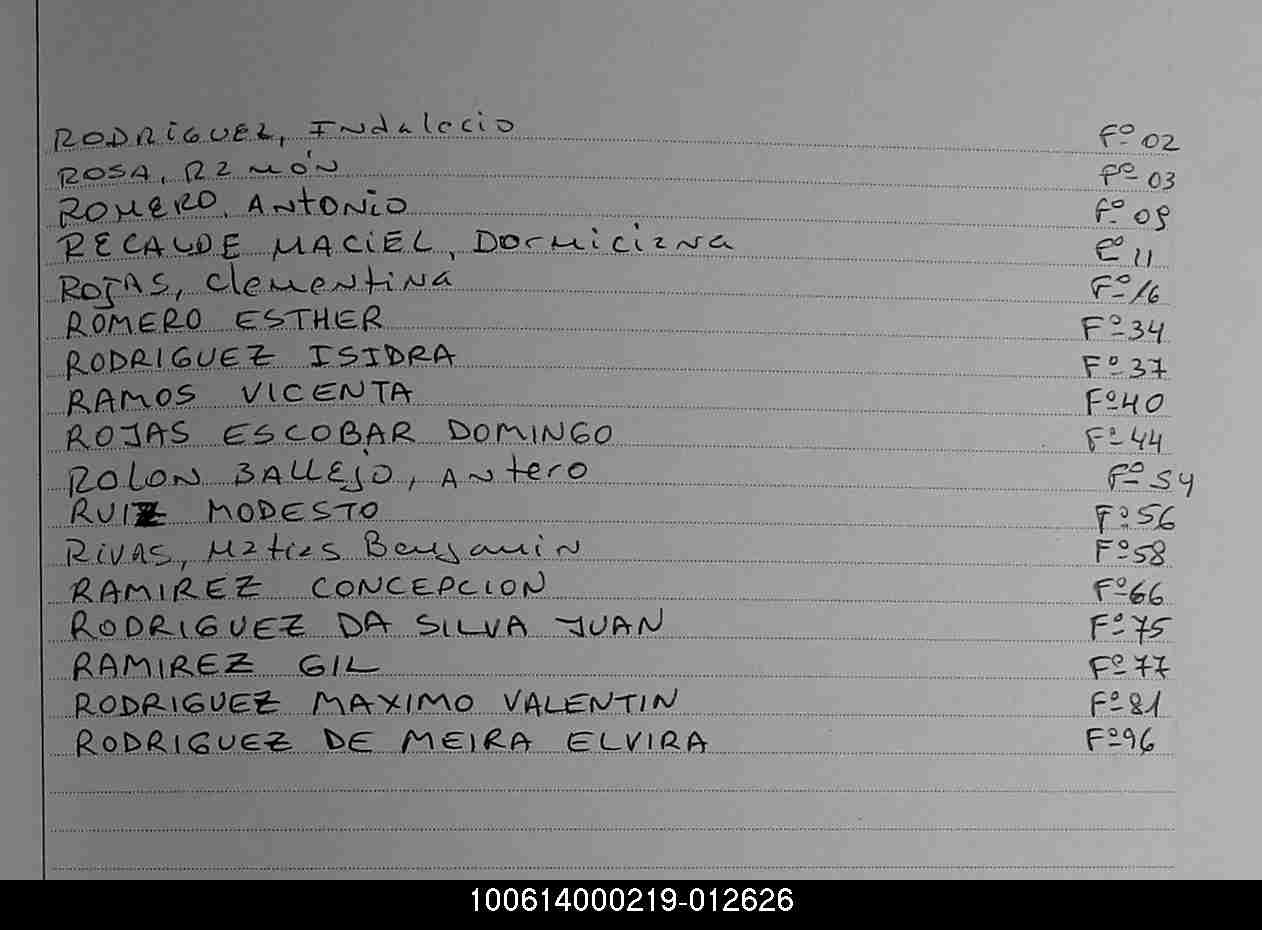 RODRIGUEZ, Indalecio Fº 02
ROSA, RAMÓN Fº 03
ROMERO, ANTONIO Fº 09
RECALDE MACIEL, Dormiciana Fº 11
ROJAS, Clementina Fº 16
ROMERO ESTHER Fº 34
RODRIGUEZ ISIDRA Fº 37
RAMOS VICENTA Fº 40
ROJAS ESCOBAR DOMINGO Fº 44
ROLON BALLEJO, Antero Fº 54
RUIZ MODESTO Fº 56
Rivas, Matias Benjamin Fº 58
RAMIREZ CONCEPCION Fº 66
RODRIGUEZ DA SILVA JUAN Fº 75
RAMIREZ GIL Fº 77
RODRIGUEZ MAXIMO VALENTIN Fº 81
RODRIGUEZ DE MEIRA ELVIRA Fº 96
100614000219-012626